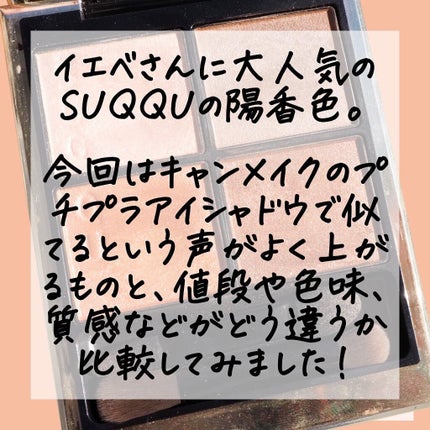 イエベさんに大人気の
SUQQUの陽香色。
今回はキャンメイクのプ
チプラアイシャドウで似
てるという声がよく上が
るものと、値段や色味、
質感などがどう違うか
比較してみました！